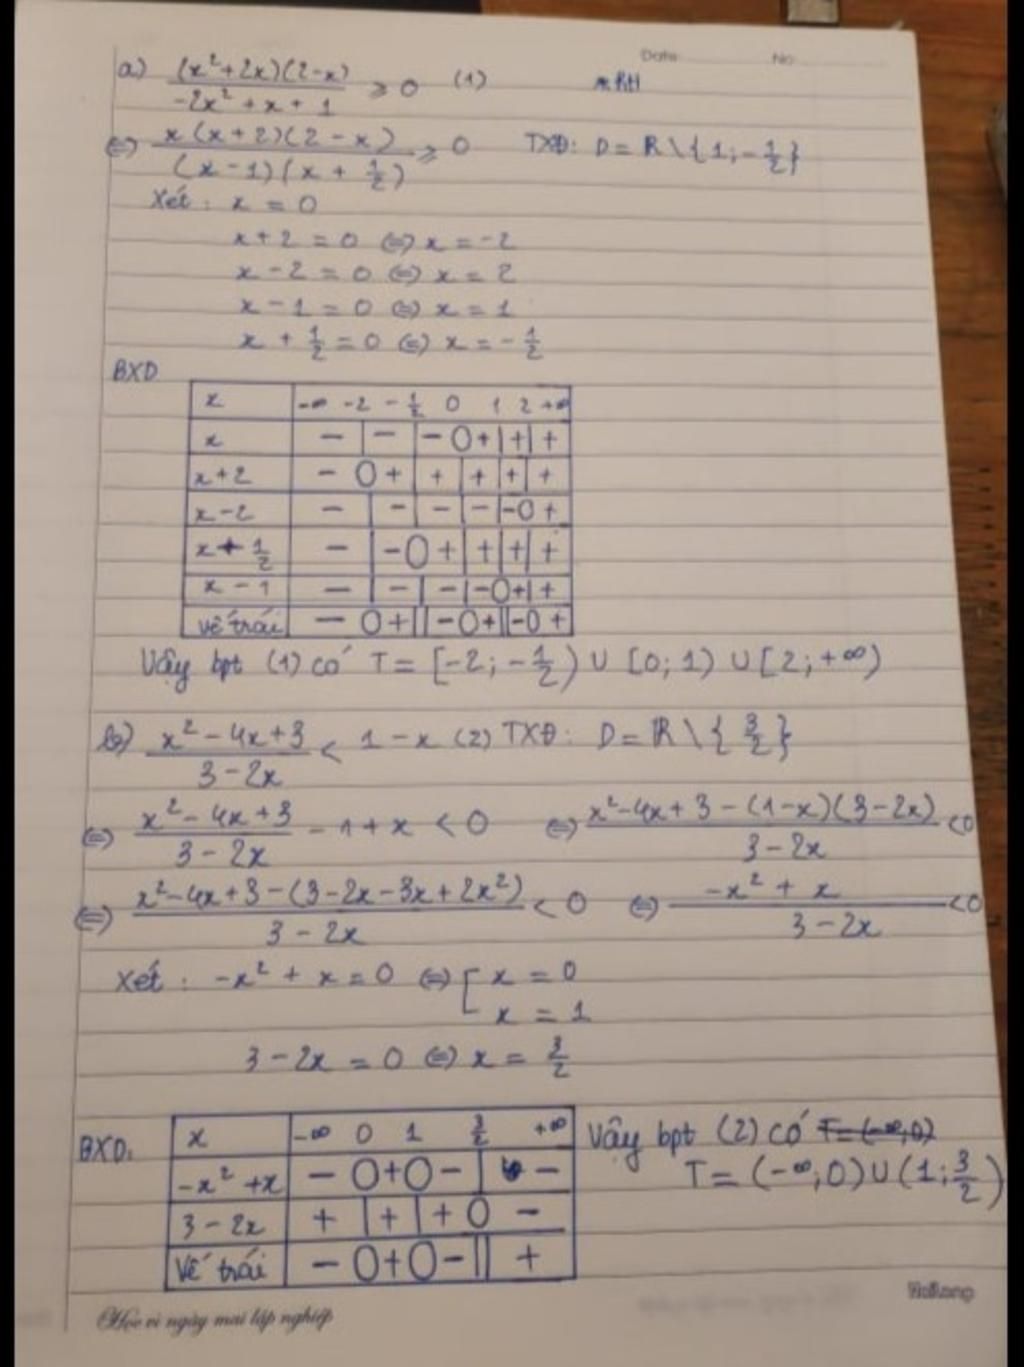 Date No
a) (x²+2x)(2-x) / -2x² + x + 1 ≥ 0 (1)
⇔ x(x+2)(2-x) / (x-1)(x + 1/2) ≥ 0 TXĐ: D = R\{1; -1/2}
Xét: x = 0
x+2 = 0 ⇔ x = -2
x-2 = 0 ⇔ x = 2
x-1 = 0 ⇔ x = 1
x + 1/2 = 0 ⇔ x = -1/2
BXD
x | -∞ -2 -1/2 0 1 2 +∞
x | - | - | - 0 + | + | +
x+2 | - 0 + | + | + | + | +
x-2 | - | - | - | - | - 0 +
x + 1/2 | - | - 0 + | + | + | +
x - 1 | - | - | - | - 0 + | +
Vế trái | - 0 + || - 0 + || - 0 +
Vậy bpt (1) có T = [-2; -1/2) ∪ [0; 1) ∪ [2; +∞)
b) x² - 4x + 3 / 3 - 2x < 1 - x (2) TXĐ: D = R\{3/2}
⇔ x² - 4x + 3 / 3 - 2x - 1 + x < 0 ⇔ x² - 4x + 3 - (1-x)(3-2x) / 3 - 2x < 0
⇔ x² - 4x + 3 - (3 - 2x - 3x + 2x²) / 3 - 2x < 0 ⇔ -x² + x / 3 - 2x < 0
Xét: -x² + x = 0 ⇔ [ x = 0
x = 1
3 - 2x = 0 ⇔ x = 3/2
BXD.
x | -∞ 0 1 3/2 +∞
-x² + x | - 0 + 0 - | -
3 - 2x | + | + | + 0 -
Vế trái | - 0 + 0 - || +
Vậy bpt (2) có T = (-∞; 0)
T = (-∞; 0) ∪ (1; 3/2)
Học vì ngày mai lập nghiệp